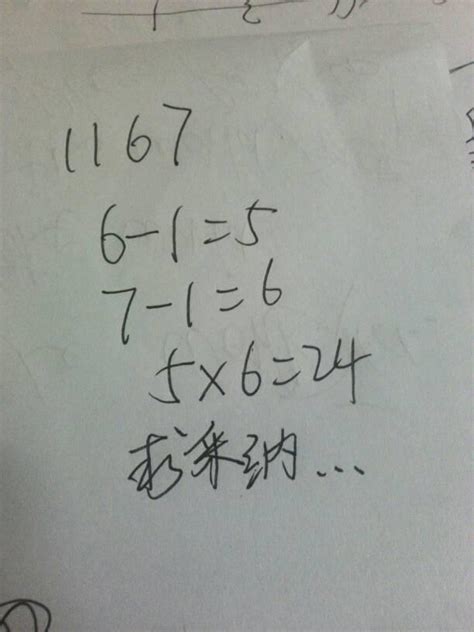 1167
6-1=5
7-1=6
5×6=24
求采纳...